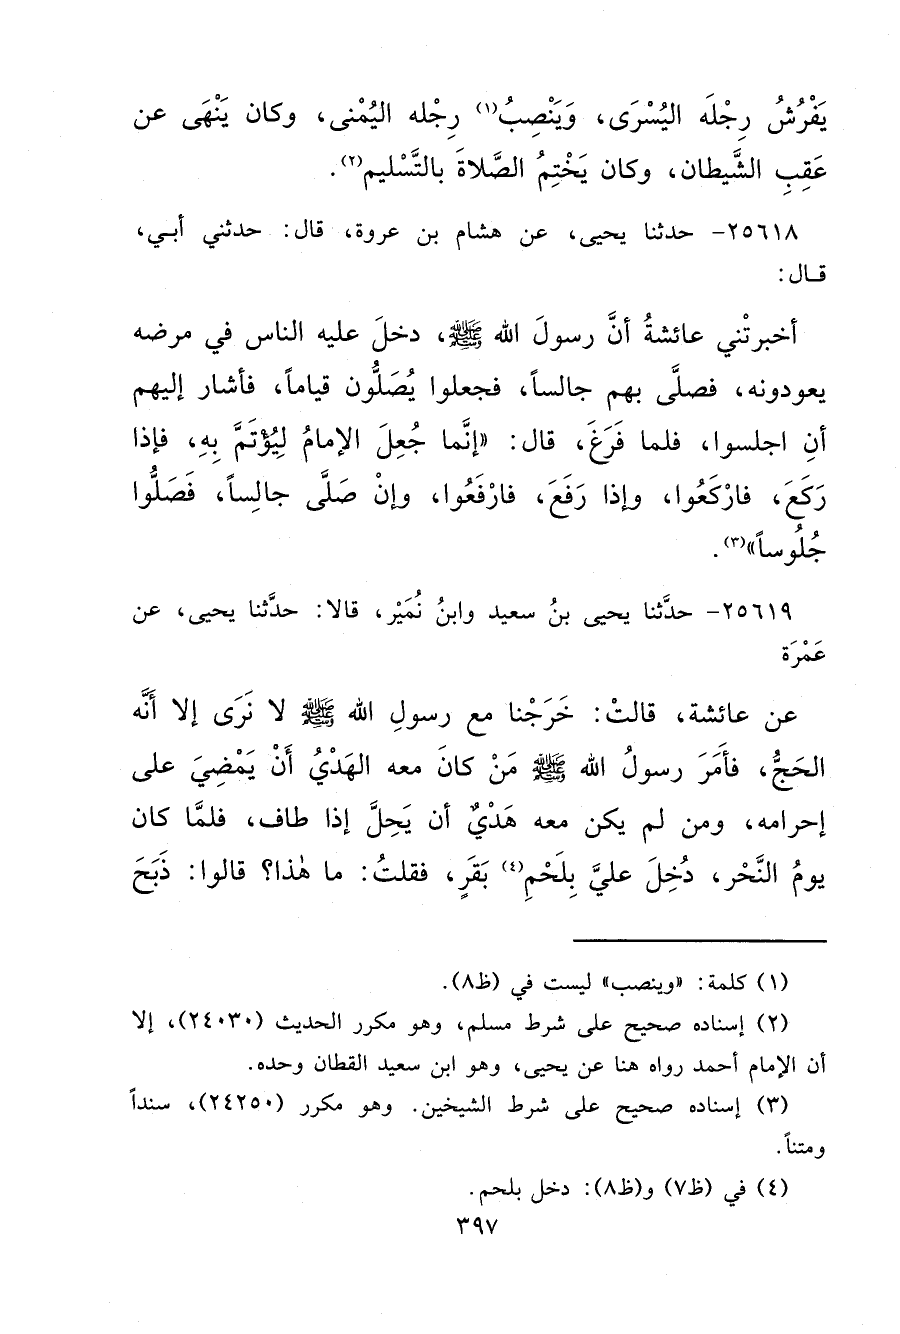 يَفْرُشُ رِجْلَه اليُسْرَى، وَيَنْصِبُ(١) رِجْله اليُمْنى، وكان يَنْهَى عن
عَقِبِ الشَّيطان، وكان يَخْتِمُ الصَّلاةَ بالتَّسْليم(٢).
٢٥٦١٨- حدثنا يحيى، عن هشام بن عروة، قال: حدثني أبي،
قال:
أخبرتْني عائشةُ أنَّ رسولَ الله ﷺ، دخلَ عليه الناس في مرضه
يعودونه، فصلَّى بهم جالساً، فجعلوا يُصَلُّون قياماً، فأشار إليهم
أنِ اجلسوا، فلما فَرَغَ، قال: «إنَّما جُعِلَ الإمامُ لِيُؤْتَمَّ بِهِ، فإذا
رَكَعَ، فارْكَعُوا، وإذا رَفَعَ، فارْفَعُوا، وإنْ صَلَّى جالِساً، فَصَلُّوا
جُلُوساً»(٣).
٢٥٦١٩- حدَّثنا يحيى بنُ سعيد وابنُ نُمَيْر، قالا: حدَّثنا يحيى، عن
عَمْرَة
عن عائشة، قالتْ: خَرَجْنا مع رسولِ الله ﷺ لا نَرَى إلا أنَّه
الحَجُّ، فأَمَرَ رسولُ الله ﷺ مَنْ كانَ معه الهَدْيُ أَنْ يَمْضِيَ على
إحرامه، ومن لم يكن معه هَدْيٌ أن يَحِلَّ إذا طاف، فلمَّا كان
يومُ النَّحْر، دُخِلَ عليَّ بِلَحْمِ(٤) بَقَرٍ، فقلتُ: ما هٰذا؟ قالوا: ذَبَحَ
(١) كلمة: «وينصب» ليست في (ظ٨).
(٢) إسناده صحيح على شرط مسلم، وهو مكرر الحديث (٢٤٠٣٠)، إلا
أن الإمام أحمد رواه هنا عن يحيى، وهو ابن سعيد القطان وحده.
(٣) إسناده صحيح على شرط الشيخين. وهو مكرر (٢٤٢٥٠)، سنداً
ومتناً.
(٤) في (ظ٧) و(ظ٨): دخل بلحم.
٣٩٧